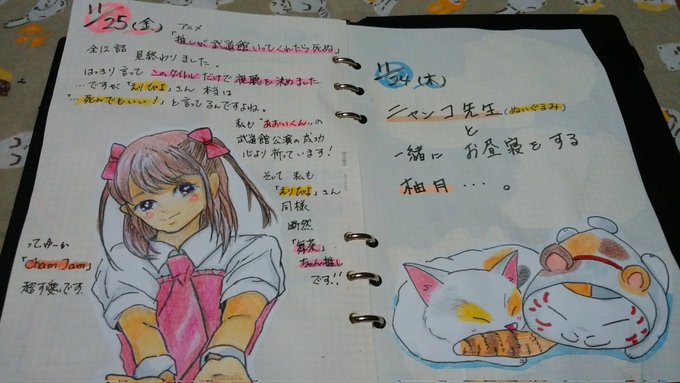 11/25(金)
アニメ
「推しが武道館いってくれたら死ぬ」
全12話 見終わりました.
はっきり言ってこのタイトルだけで視聴を決めました
…ですが「えりぴよ」さん 本当は
「…死んでもいい!」と言ってるんですよね。
私も"あおいくん"の
武道館公演の成功
心より祈っています!
そして 私も
「えりぴよ」さん
同様
断然
「舞菜」
ちゃん推し
です!!
ってゆーか
「Cham Jam」
超す愛です.
11/24(木)
ニャンコ先生(ぬいぐるみ)
と
一緒に お昼寝をする
柚月…。